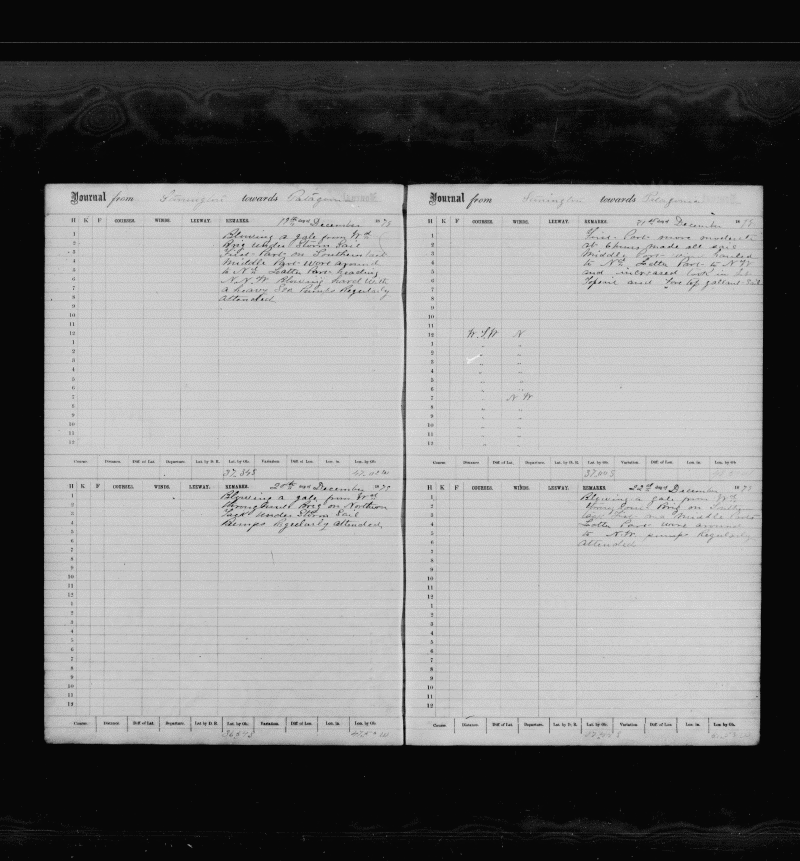 Journal from Stonington towards Patagonia
H K F COURSES. WINDS. LEEWAY. REMARKS. 19th Dec December 1879
1 Blowing a gale from Wd
2 Brig Under Storm Sail
3 First Part on Southern
4 Middle Part wore around
5 to Nd Latter Part heading
6 N.N.W Blowing hard with
7 a heavy Sea Pumps Regularly
8 Attended
9
10
11
12
1
2
3
4
5
6
7
8
9
10
11
12
Course. Distance. Diff of Lat. Departure. Lat. by D. R. Lat. by Ob. Variation. Diff of Lon. Lon. in. Lon. by Ob.
H K F COURSES. WINDS. LEEWAY. REMARKS. 20th December 1879
1 Blowing a gale from Wd
2 throughout Brig on Northern
3 Tack Under Storm Sail
4 Pumps Regularly Attended
5
6
7
8
9
10
11
12
1
2
3
4
5
6
7
8
9
10
11
12
Course. Distance. Diff of Lat. Departure. Lat. by D. R. Lat. by Ob. Variation. Diff of Lon. Lon. in. Lon. by Ob.
Journal from Stonington towards Patagonia
H K F COURSES. WINDS. LEEWAY. REMARKS. 21st December 187
1 First Part more moderate
2 at made all sail
3 Middle Part wind hauled
4 to Nd Latter Part to N.W
5 and increased took in
6 Topsail and Fore top gallant Sail
7
8
9
10
11
12 W.S.W N
1 " "
2 " "
3 " "
4 " "
5 " "
6 " "
7 " N W
8 " "
9 " "
10 " "
11 " "
12 " "
Course. Distance. Diff of Lat. Departure. Lat. by D. R. Lat. by Ob. Variation. Diff of Lon. Lon. in. Lon. by Ob.
H K F COURSES. WINDS. LEEWAY. REMARKS. 22d December 1879
1 Blowing a gale from Wd
2 throughout Brig on
3 First and Middle Parts
4 Latter Part wore around
5 to N.W pumps Regularly
6 Attended
7
8
9
10
11
12
1
2
3
4
5
6
7
8
9
10
11
12
Course. Distance. Diff of Lat. Departure. Lat. by D. R. Lat. by Ob. Variation Diff of Lon. Lon. in. Lon. by Ob.